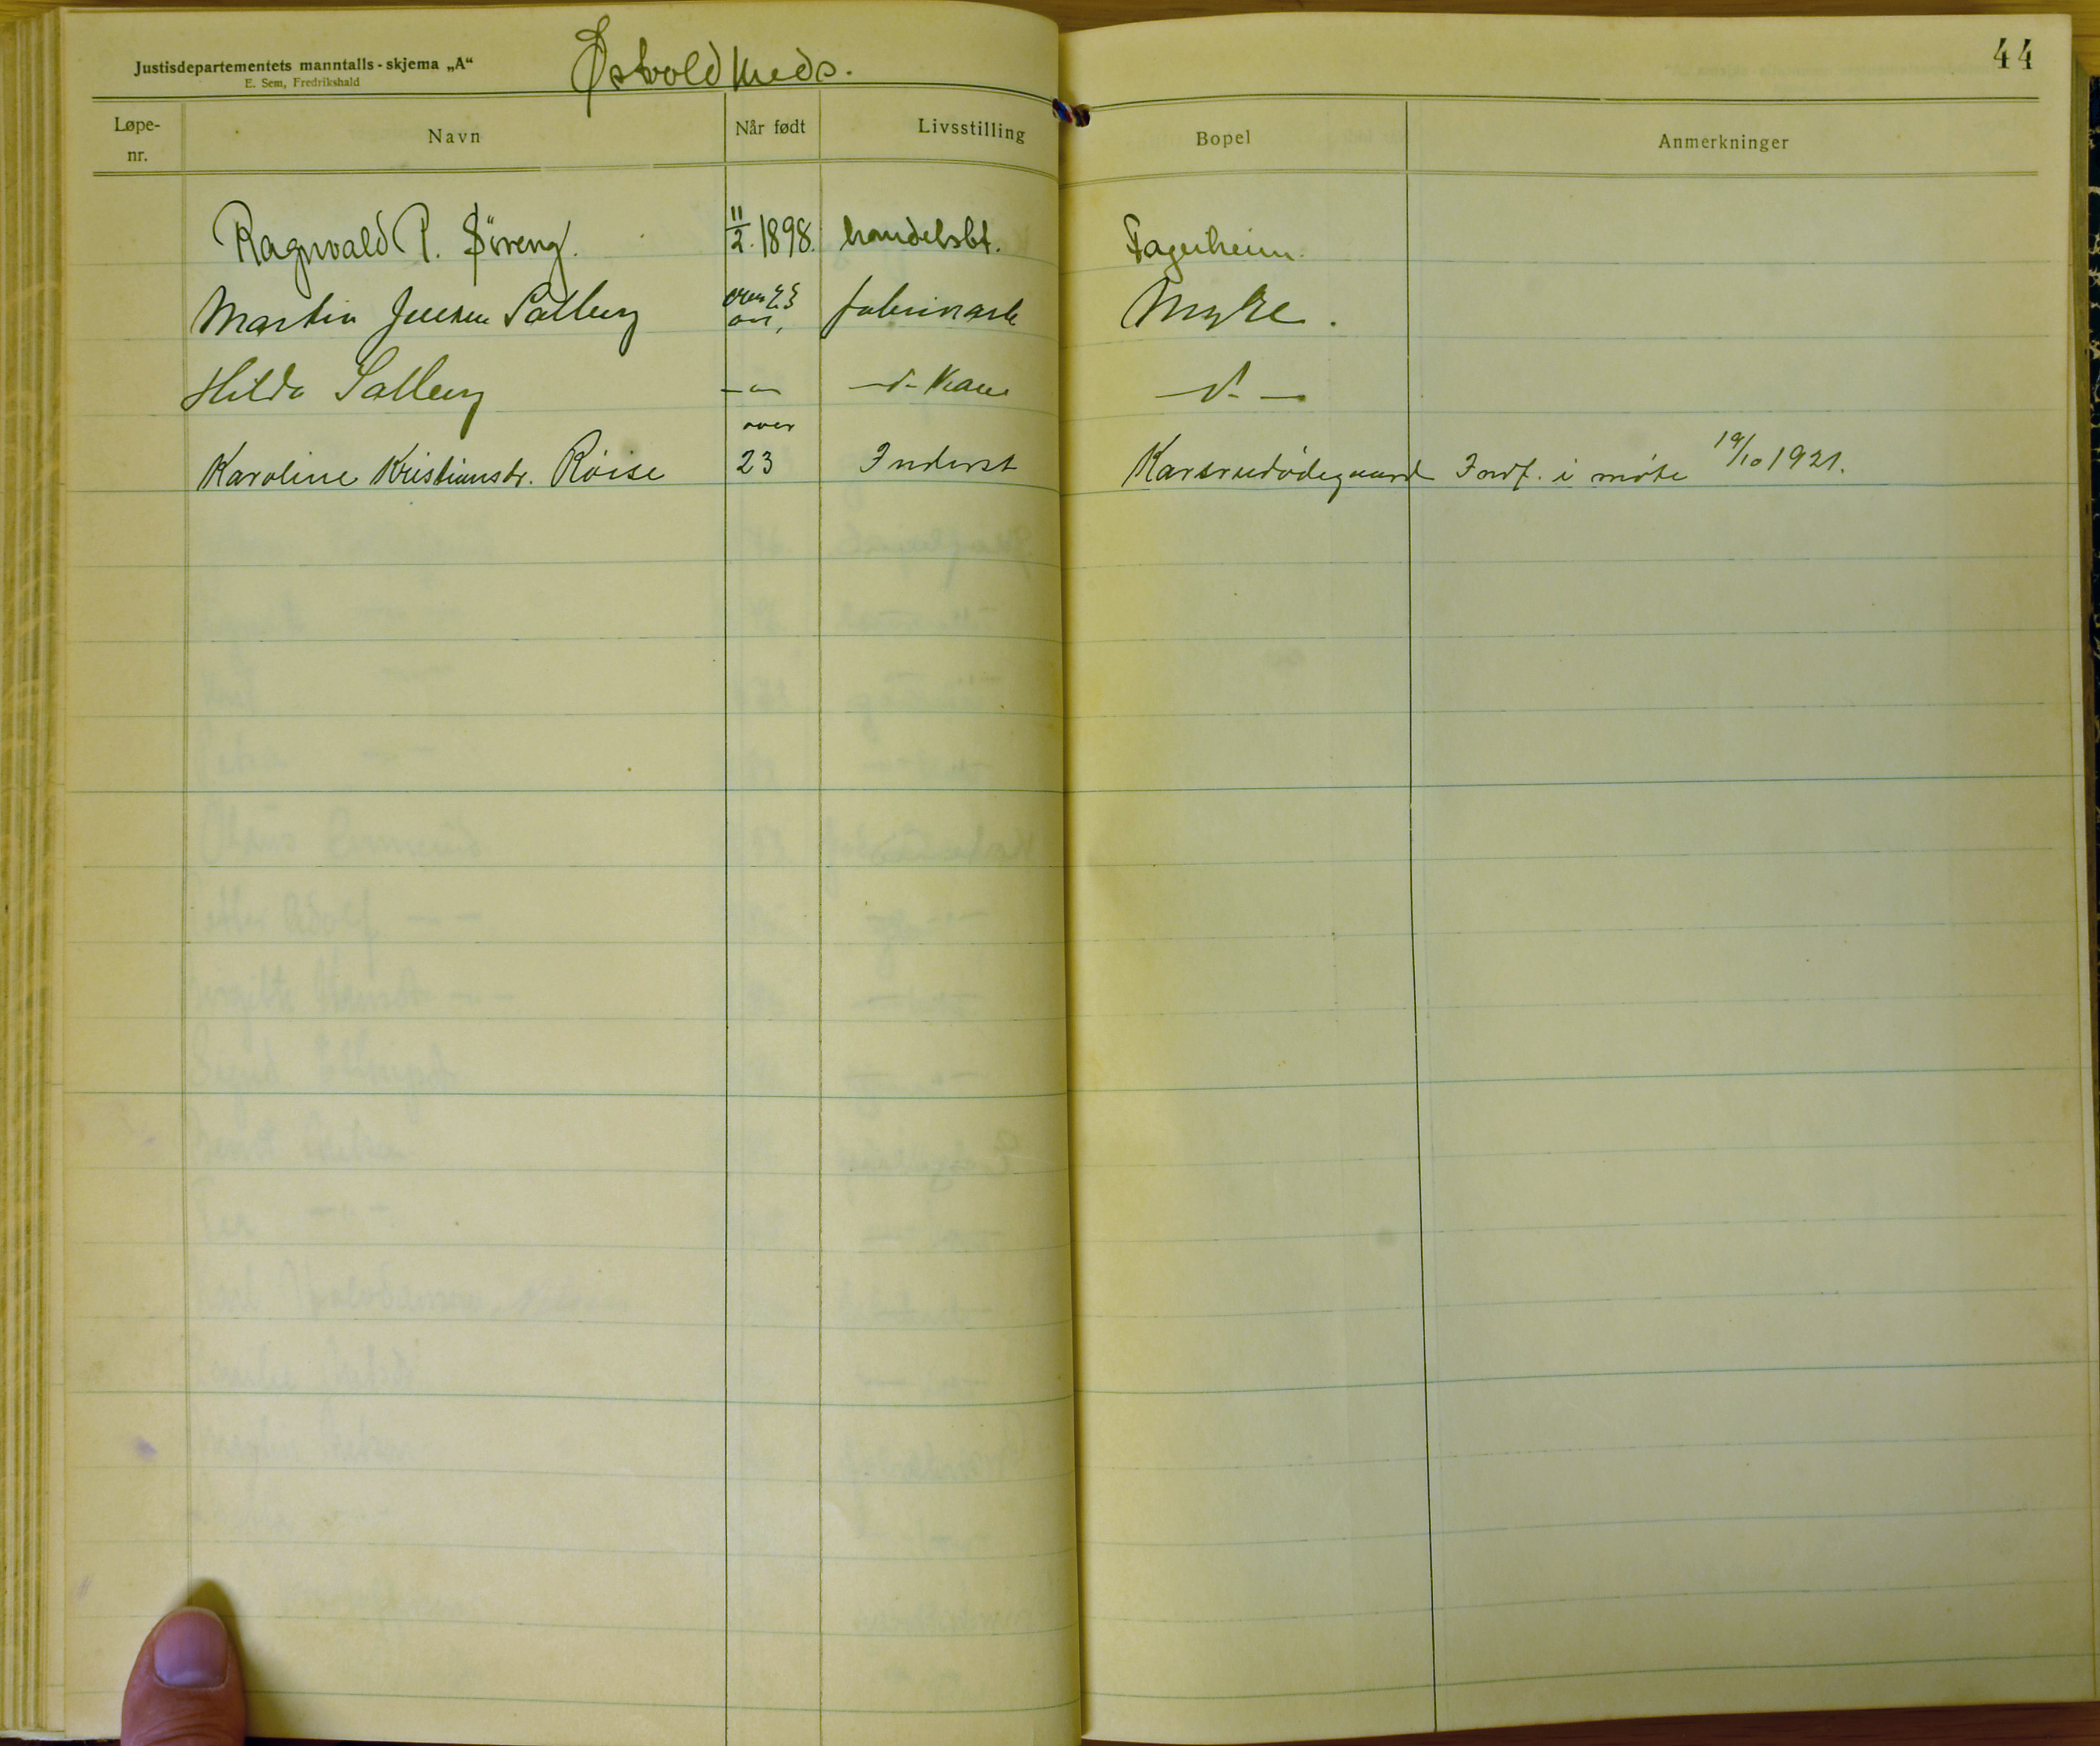 Justisdepartementets manntalls-skjema „A“
E. Sem, Fredrikshald
Østvold kreds.
44
Løpe-nr. Navn Når født Livsstilling Bopel Anmerkninger
Ragnvald P. Søreng. 11/2. 1898. handelsbt. Fagerheim.
Martin Jensen Solberg over 23 år, Myhre.
Hilda Solberg — " — — d - — d - —
Karoline Kristiansdr. Röise over 23 Inderst Karsrudødegaard Indf. i møte 19/10 1921.